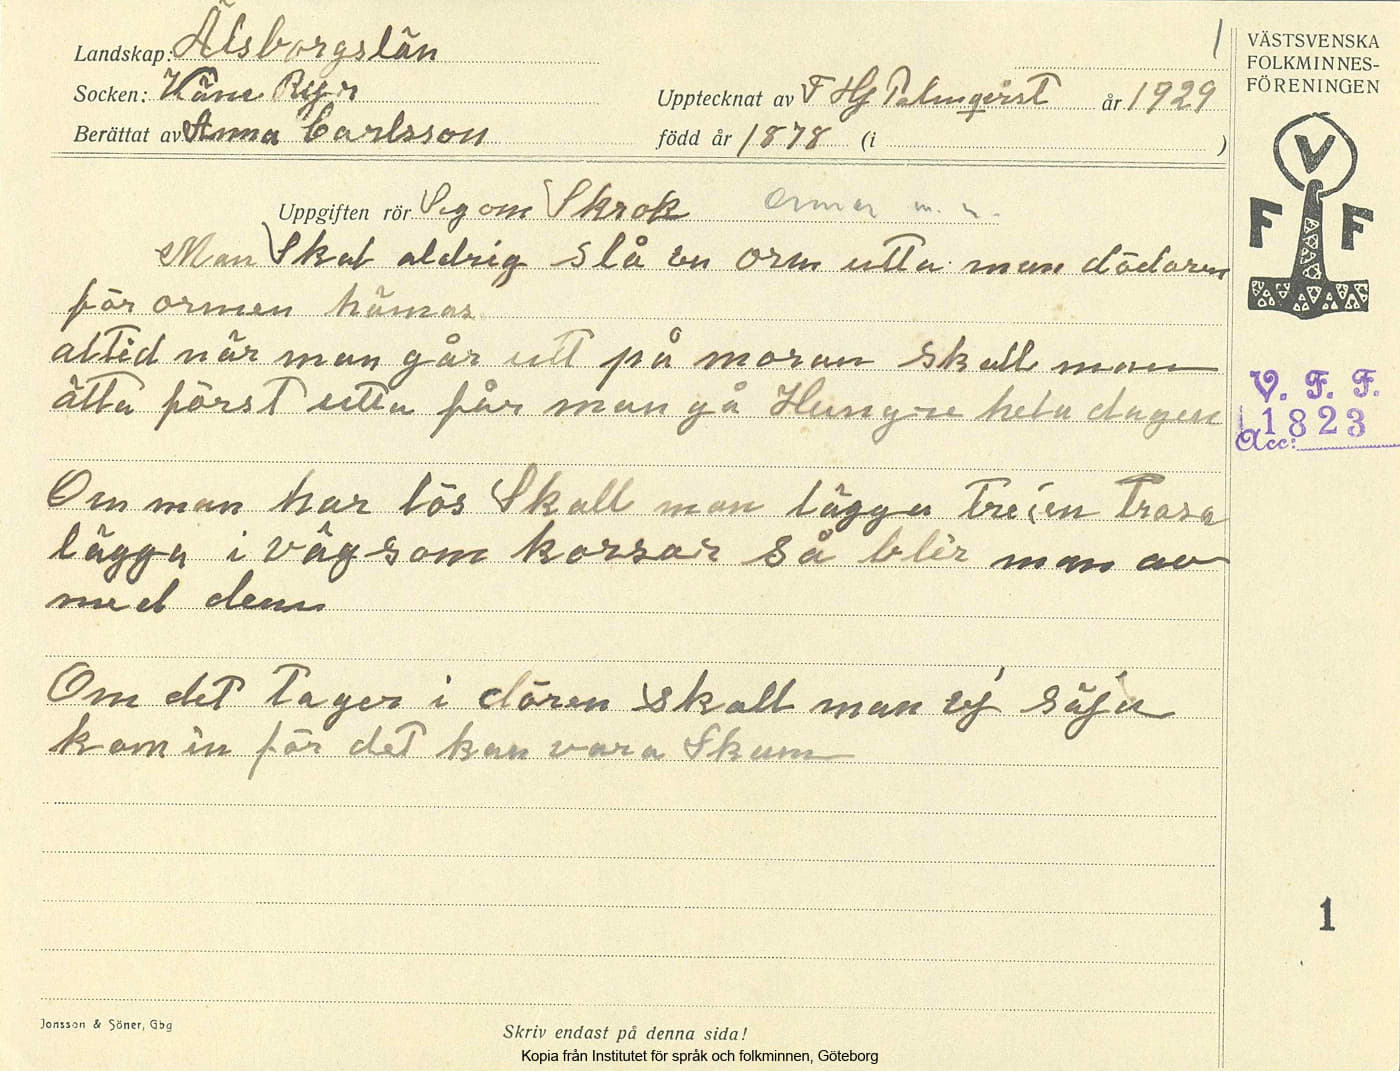 Landskap: Älsborgslän
1
Socken: Väne Ryr
Upptecknat av F Hj Palmqvist år 1929
Berättat av Anna Carlsson
född år 1878 (i )
VÄSTSVENSKA
FOLKMINNES-
FÖRENINGEN
V
F F
V. F. F.
1823
Acc:
Uppgiften rör Seg om Skrok Ormar m. m.
Man Skal aldrig slå en orm utta man dödaren
för ormen hämas
altid när man går utt på moran skall man
ätta först utta får man gå Hungrie hela dagen
Om man har lös Skall man lägga tre i en trasa
lägga i väg som korsar så blir man av
med dem
Om det tager i dören skall man ej säja
kom in för det kan vara Skum
1
Jonsson & Söner, Gbg
Skriv endast på denna sida!
Kopia från Institutet för språk och folkminnen, Göteborg